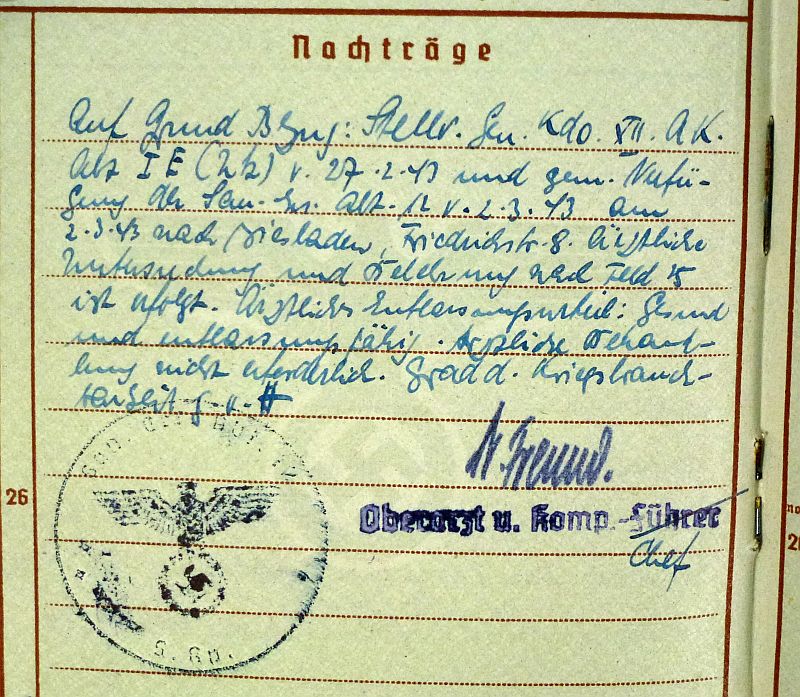 Nachträge
Auf Grund Bezug: Stellv. Gen. Kdo. XII. A.K.
Abt I E (Ltz) v. 27.2.43 und gem. Verfü-
gung der San.-Ers. Abt. 12 v. 2.3.43 am
2.3.43 nach Wiesbaden, Friedrichstr. 8. Ärztliche
Untersuchung und Belehrung nach Feld 15
ist erfolgt. Ärztliches Entlassungsurteil: Gesund
und entlassungsfähig. Ärztliche Behand-
lung nicht erforderlich. Grad d. Kriegsbrauch-
barkeit g. v. H
26
Oberarzt u. Komp.-Führer
Chef